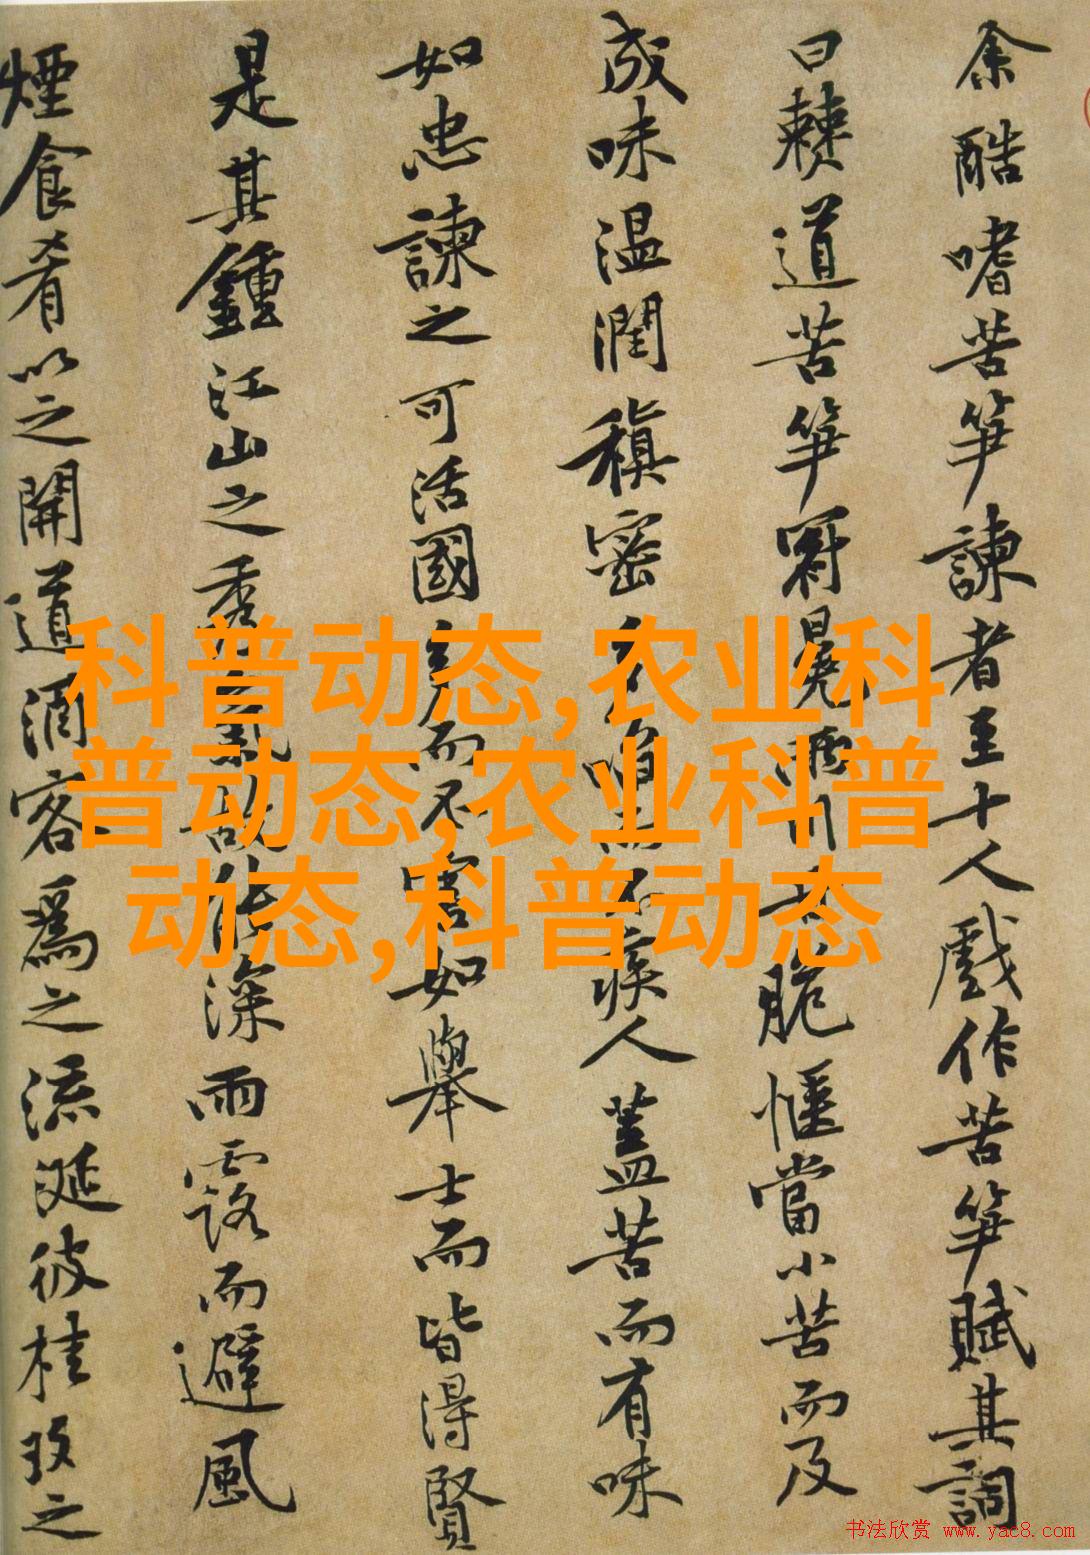 余酷嗜苦笋諫者至十人戲作苦笋賦其詞
曰僰道苦笋冠冕兩川甚脆愜當小苦而及
成味温潤稹密多啗而不疾人蓋苦而有味
如忠諫之可活國多而不害如舉士而皆得賢
是其鍾江山之秀氣故能深雨露而避風
煙食肴以之開道酒客為之流涎彼桂玫之
科普动态,农业科
普动态,农业科普
动态,科普动态
书法欣赏 www.yac8.com